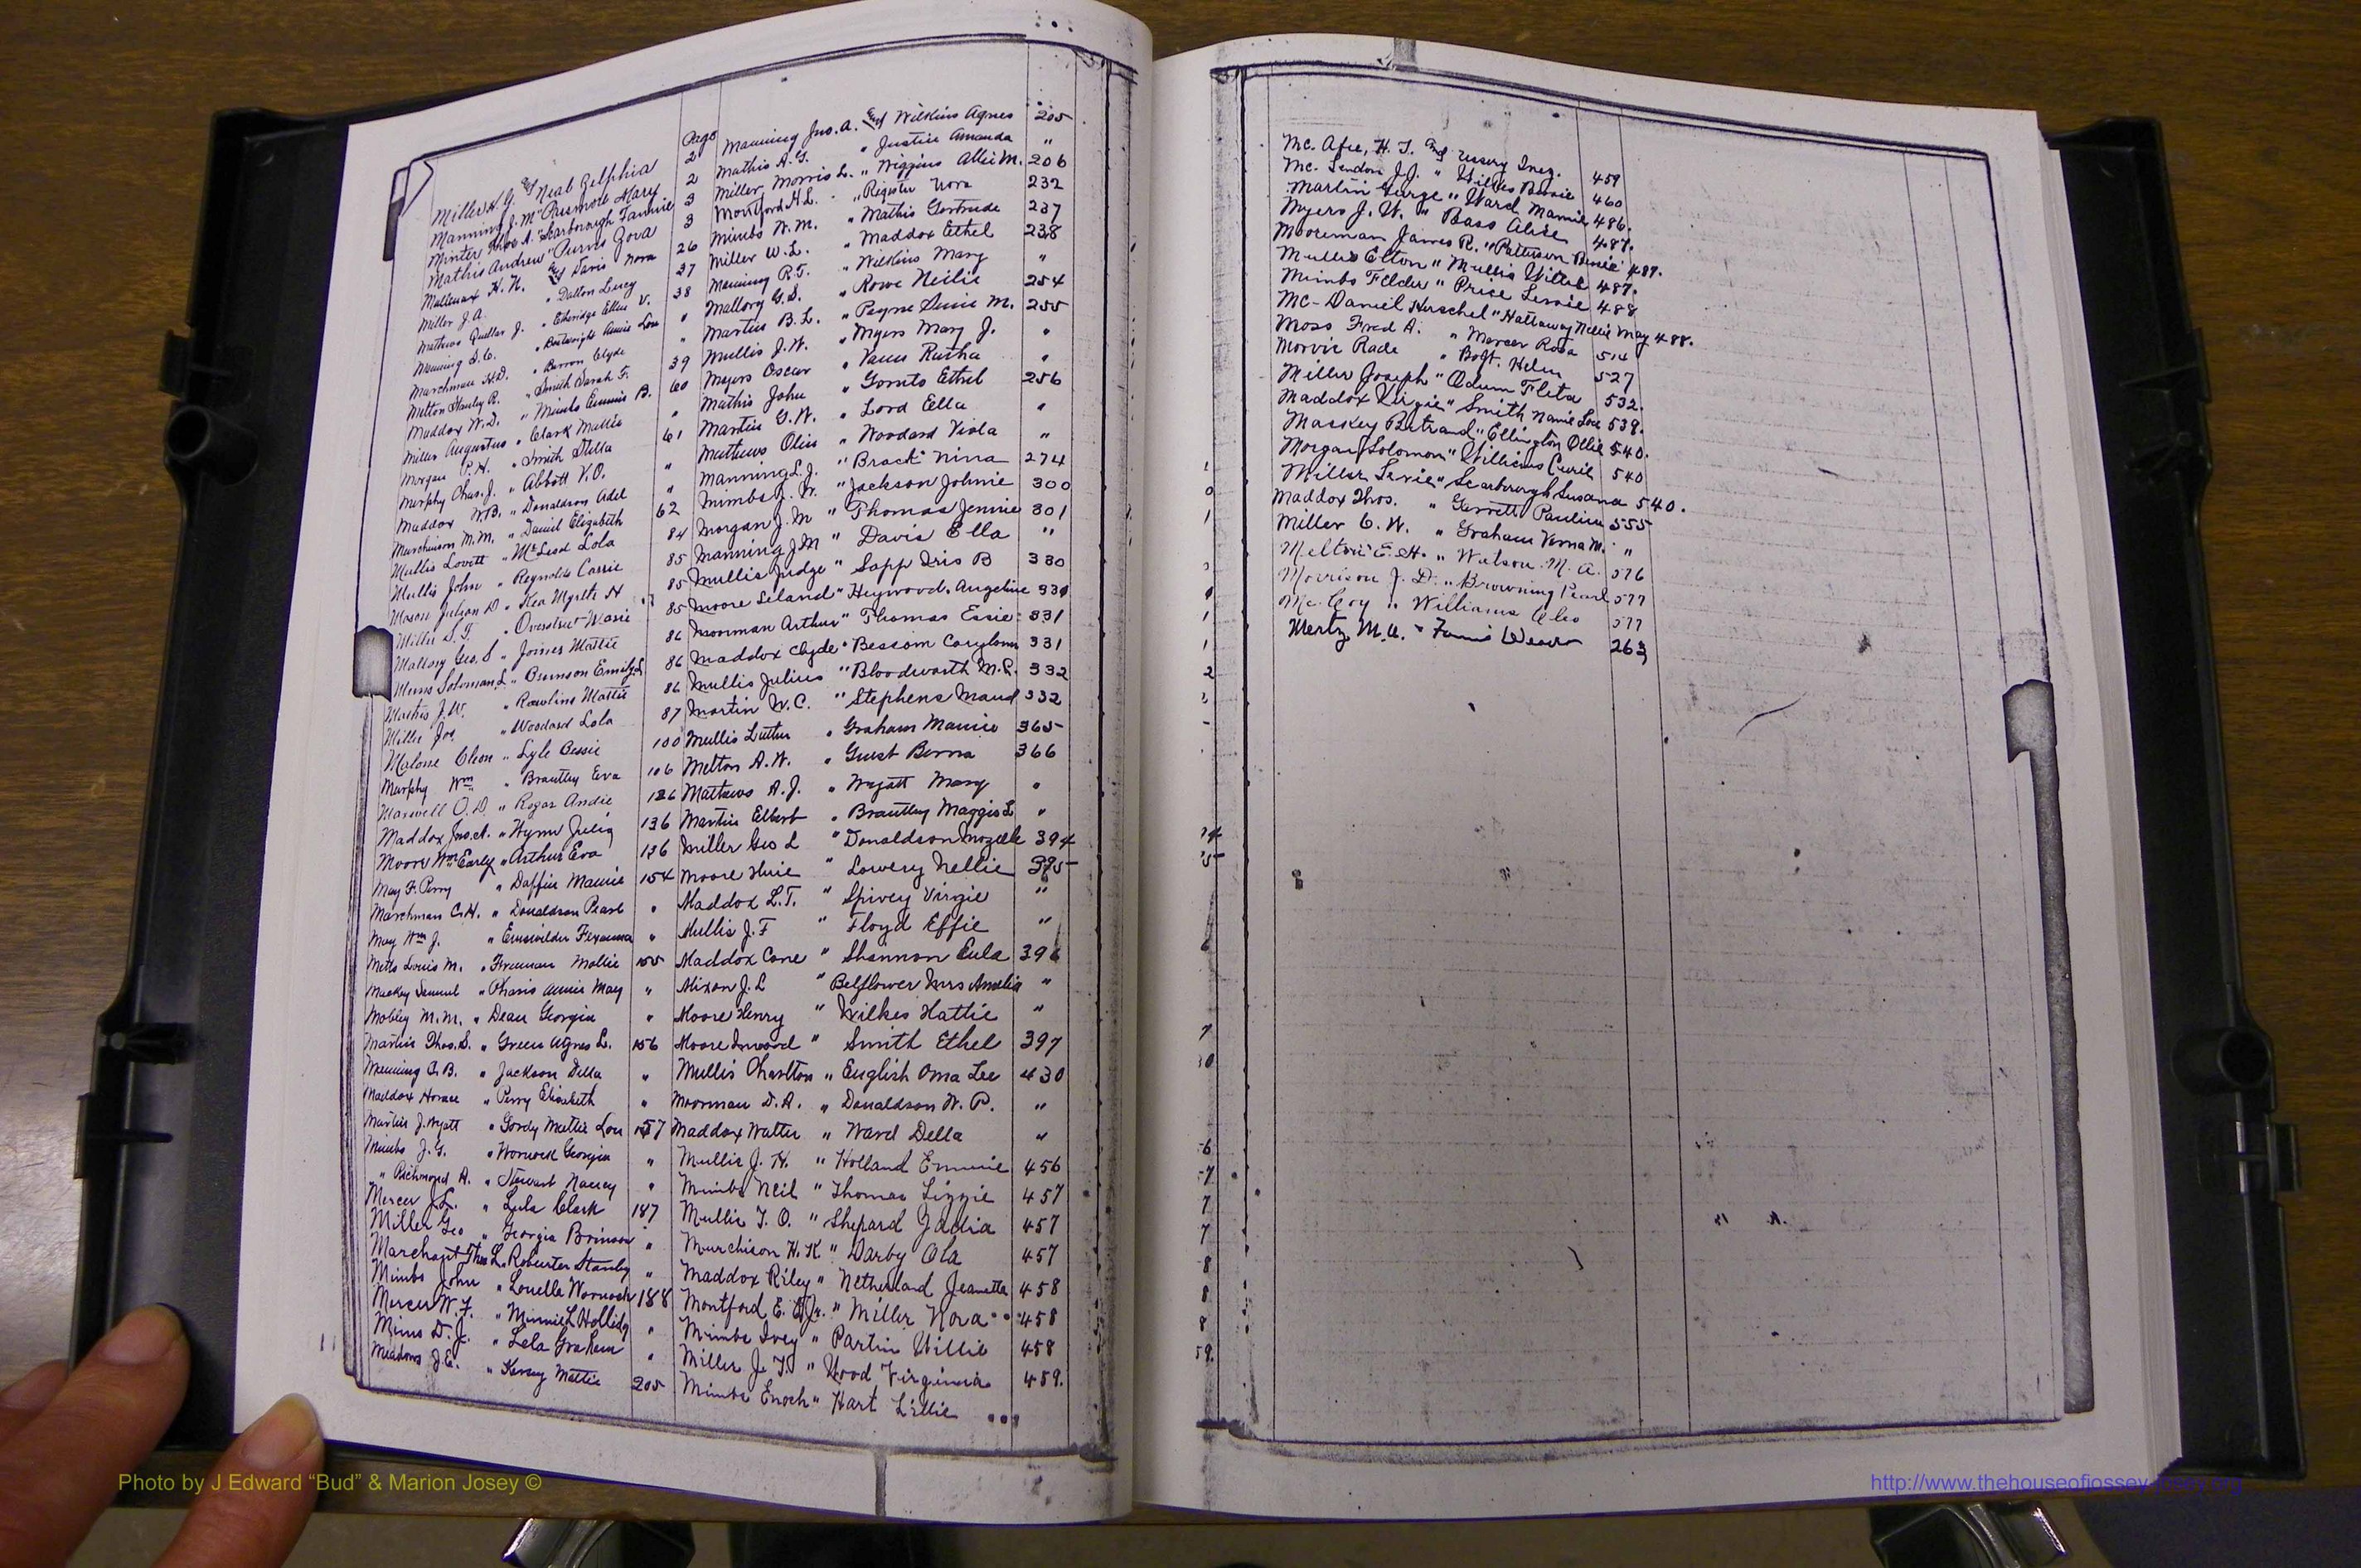 Page
Miller H. G. and Neal Zelphia 2
Manning J. M. " Mary 2
Minter A. " Scarborough Fannie 3
Mathis Andrew " Burns Zova 3
H. H. and Davis Nora 26
Miller J. A. " Dalton Lucy 37
Mathews J. " Etheridge Ellen V. 38
Manning S. C. " Annie Lou "
Marchman H. D. " Barron Clyde "
Melton Stanley R. " Smith Sarah F. 39
Maddox W. D. " Mimbs Emmie B. 60
Miller Augustus " Clark Mattie "
Morgan P. H. " Smith Stella 61
Murphy Chas. J. " Abbott V. O. "
Maddox W. B. " Donaldson Adel "
Murchison M. M. " Daniel Elizabeth 62
Mullis Lovett " McLeod Lola 84
Mullis John " Reynolds Carrie 85
Mason Julian D. " Kea Myrtle H 85
Miller S. T. " Overstreet 85
Mallory Geo. S " Joiner Mattie 86
Mims Soloman L. " Brunson Emily L. 86
Mathis J. W. " Rawlins Mattie 86
Miller Joe " Woodard Lola 87
Malone Cleon " Lyle Bessie 100
Murphy Wm " Brantley Eva 106
Maxwell O. D. " Andie 126
Maddox Jno. A. " Wynn Julia 136
Moore Wm Early " Arthur Eva 136
May F. Perry " Daffin Mamie 154
Marchman C. H. " Donaldson Pearl "
May Wm J. " "
Metts Louis M. " Freeman Mollie 155
Mackey Samuel " Annie May "
Mobley M. M. " Dean Georgia "
Martin Thos. S. " Green Agnes L. 156
Manning C. B. " Jackson Della "
Maddox Horace " Perry Elizabeth "
Martin J. Wyatt " Gordy Mattie Lou 157
Mimbs J. G. " Warnock Georgia "
" Richmond A. " Stewart Nancy "
Mercer J. L. " Lula Clark 187
Miller Geo " Georgia Brinson "
Marchant Thos L. " Roberter Stanley "
Mimbs John " Louella Warnock 188
Mercer W. F. " Minnie L Hollidy "
Mims D. J. " Lela Graham "
Meadows J. E. " Mattie 205
Manning Jno. A. and Wilkins Agnes 205
Mathis A. G. " Justice Amanda "
Miller Morris L. " Wiggins Allie M. 206
Montford H. L. " Register Nora 232
Mimbs W. M. " Mathis Gertrude 237
Miller W. L. " Maddox Ethel 238
Manning R. T. " Wilkins Mary "
Mallory G. S. " Rowe Neilie 254
Martin B. L. " Payne M. 255
Mullis J. W. " Myers Mary J. "
Myers Oscar " Vann Rutha "
Mathis John " Gornto Ethel 256
Martin G. W. " Lord Ella "
Mathews Olin " Woodard Viola "
Manning L. J. " Brack Nina 274
Mimbs J. W. " Jackson Johnie 300
Morgan J. M " Thomas Jennie 301
Manning J M " Davis Ella "
Mullis Judge " Sapp Iris B 330
Moore Leland " Heywood Angeline 330
Moorman Arthur " Thomas Essie 331
Maddox Clyde " Beacom 331
Mullis Julius " Bloodworth M. P. 332
Martin W. C. " Stephens Maud 332
Mullis Luther " Graham Mamie 365
Melton A. W. " Guest Berna 366
Mathews A. J. " Wyatt Mary "
Martin Elbert " Brantley Maggie L "
Miller Geo L " Donaldson Mozelle 394
Moore " Lowery Nellie 395
Maddox L. T. " Spivey Virgie "
Mullis J. F " Floyd Effie "
Maddox Cone " Shannon Eula 396
Mixon J. L " Belflower Mrs Amelia "
Moore Henry " Wilkes Hattie "
Moore Inwood " Smith Ethel 397
Mullis Charlton " English Oma Lee 430
Moorman D. A. " Donaldson W. P. "
Maddox Walter " Ward Della "
Mullis J. H. " Holland Emmie 456
Mimbs Neil " Thomas Lizzie 457
Mullis T. O. " Shepard Zadia 457
Murchison H. K " Darby Ola 457
Maddox Riley " Netherland Jeanette 458
Montford E. A Jr. " Miller Nora 458
Mimbs Ivey " Partin Willie 458
Miller J. T. " Wood Virginia 459.
Mimbs Enoch " Hart Lillie "
Mc. Afee, H. T. and Ussery Inez. 459
Mc. Lendon J. J. " Wilkes Bessie 460
Martin George " Ward Mamie 486.
Myers J. W. " Bass Alice 487.
Mooreman James R. " Patterson 487.
Mullis Elton " Mullis Willie 487.
Mimbs Felder " Price Lessie 488
Mc-Daniel Herschel " Hattaway Nellie May 488.
Moss Fred A. " Mercer Rosa 514
Morvie Rade " Helen 527
Miller Joseph " Odum Fleta 532.
Maddox Virgie " Smith Namie Lou 539.
Mackey Bertrand " Ellington Ollie 540.
Morgan Solomon " Williams 540
Miller " Scarborough Susana 540.
Maddox Thos. " Garrett Pauline 555
Miller C. W. " Graham Verna M. "
Melton E. H. " Watson M. A. 576
Morrison J. D. " Browning Pearl 577
Mc. Coy " Williams Cleo 577
Mertz, M. A. " Weaver 263
Photo by J Edward “Bud” & Marion Josey ©
http://www.thehouseofjossey-josey.org